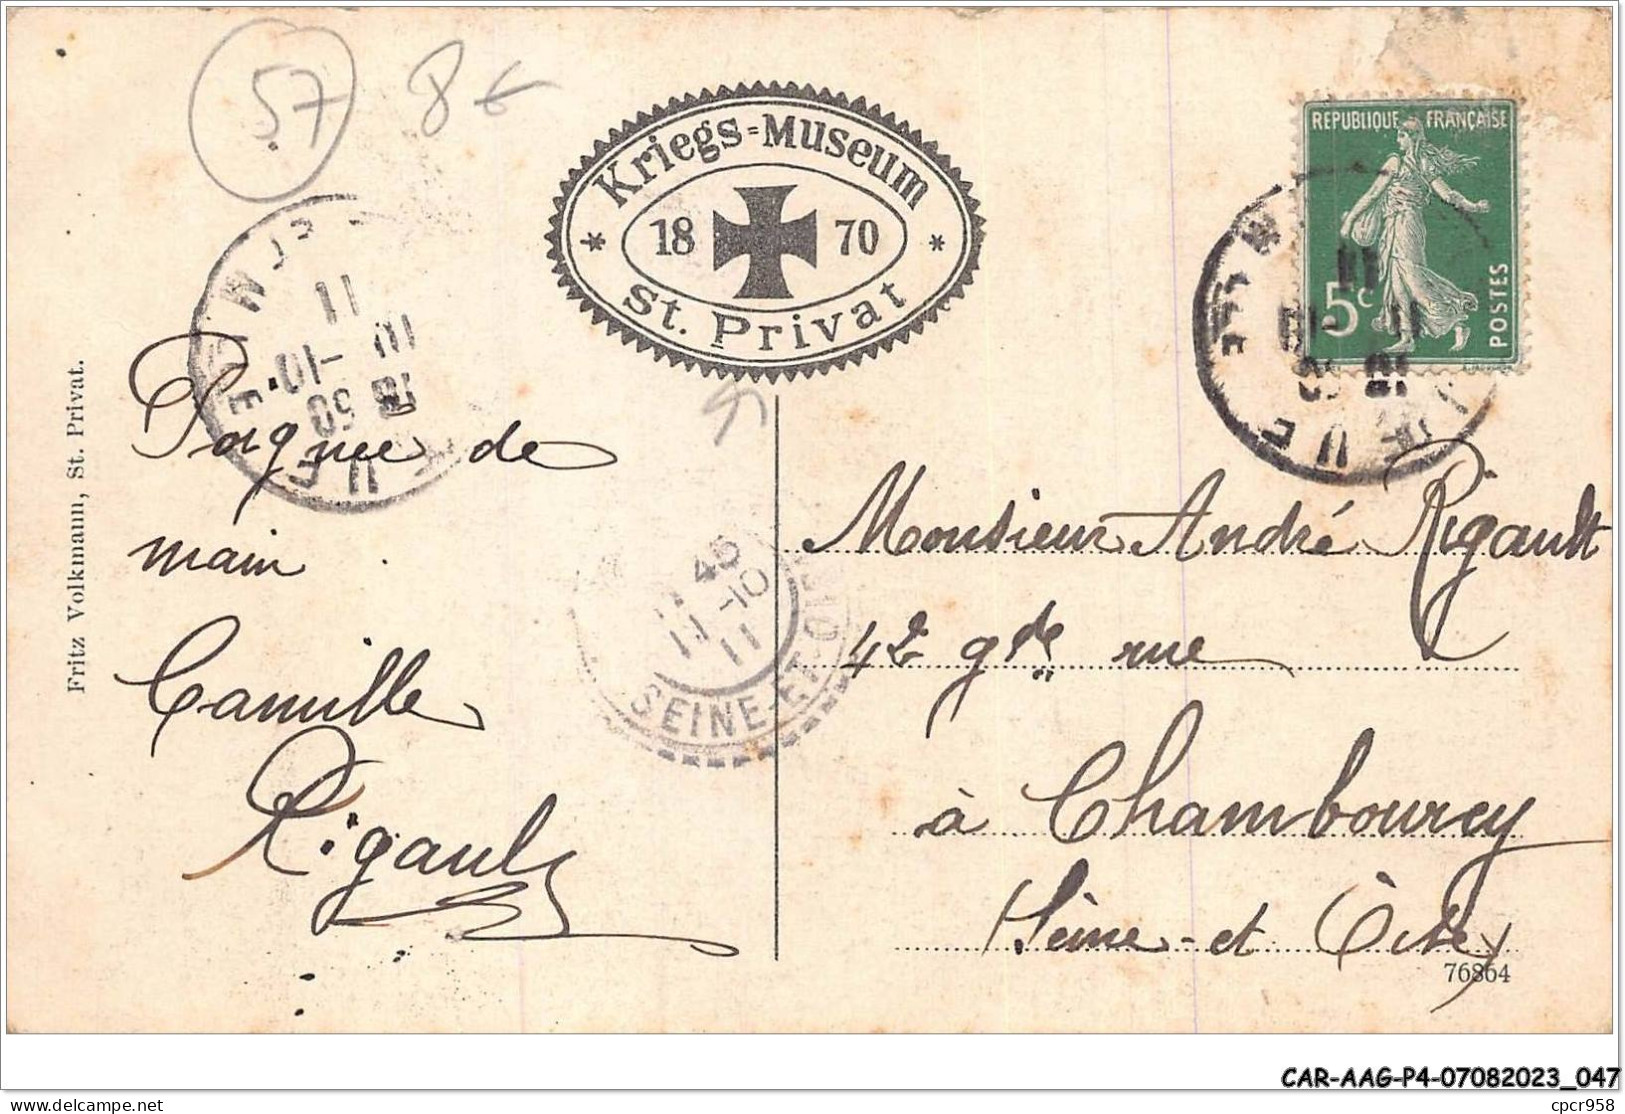 57 8€
Kriegs-Museum
18 70
St. Privat
REPUBLIQUE FRANÇAISE
5c
POSTES
11
11 -10
Fritz Volkmann, St. Privat.
de
main
Camille
Rigault
45
11-10
11
SEINE-ET-OISE
Monsieur André Rigault
42 gde rue
à Chambourcy
Seine-et Oise
76864
CAR-AAG-P4-07082023_047
cpcr958